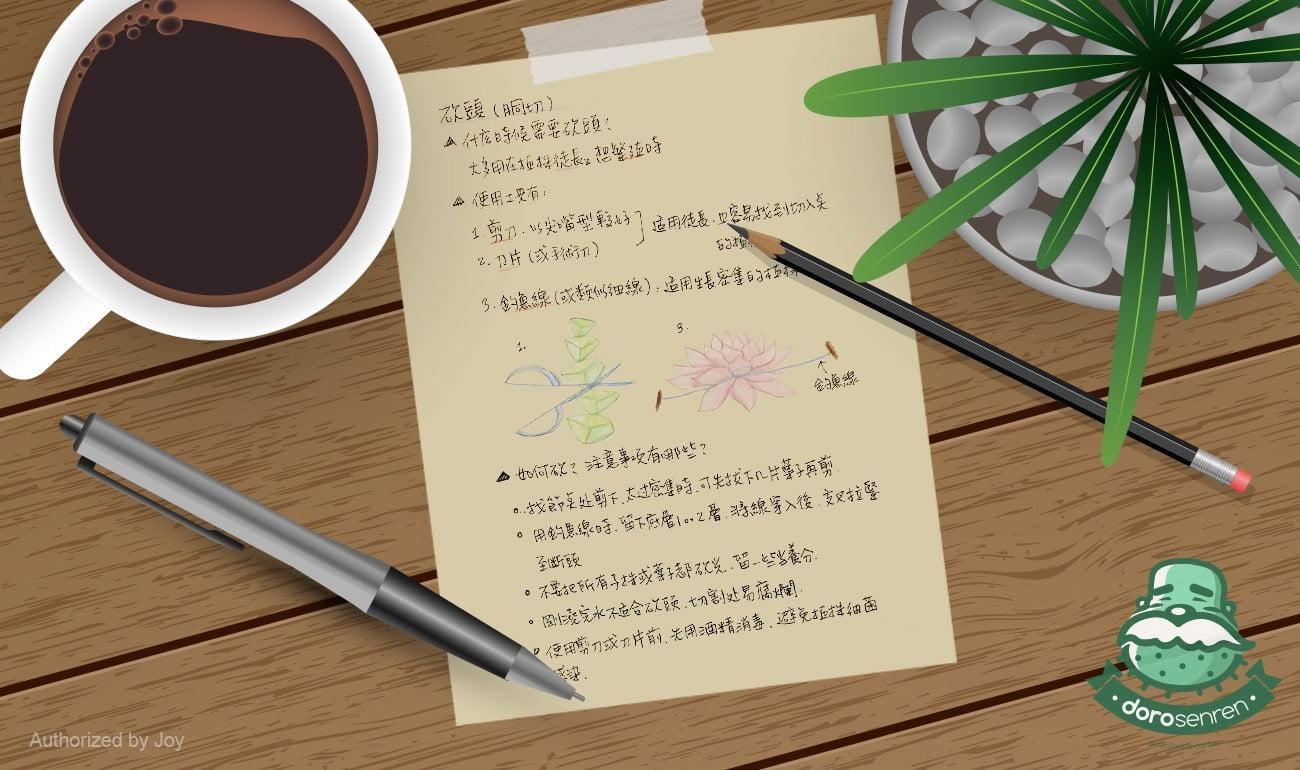 砍頭（胴切）
▲ 什麼時候需要砍頭？
大多用在植株徒長。想繁殖時
▲ 使用工具有：
1. 剪刀，以尖嘴型較好
2. 刀片（或手術刀）
適用徒長，且容易找到切入点
的植
3. 釣魚線（或類似細線）：適用生長密集的植株
1.
3.
釣魚線
▲ 如何砍？注意事項有哪些？
找節点处剪下，太过密集時，可先拔下几片葉子再剪
用釣魚線時，留下底層1~2層，將線穿入後，交叉拉緊
至斷頭
不要把所有子株或葉子都砍光，留一些当養分.
剛澆完水不適合砍頭，切割处易腐爛.
使用剪刀或刀片前，先用酒精消毒，避免植株細菌
感染.
dorosenren
Authorized by Joy